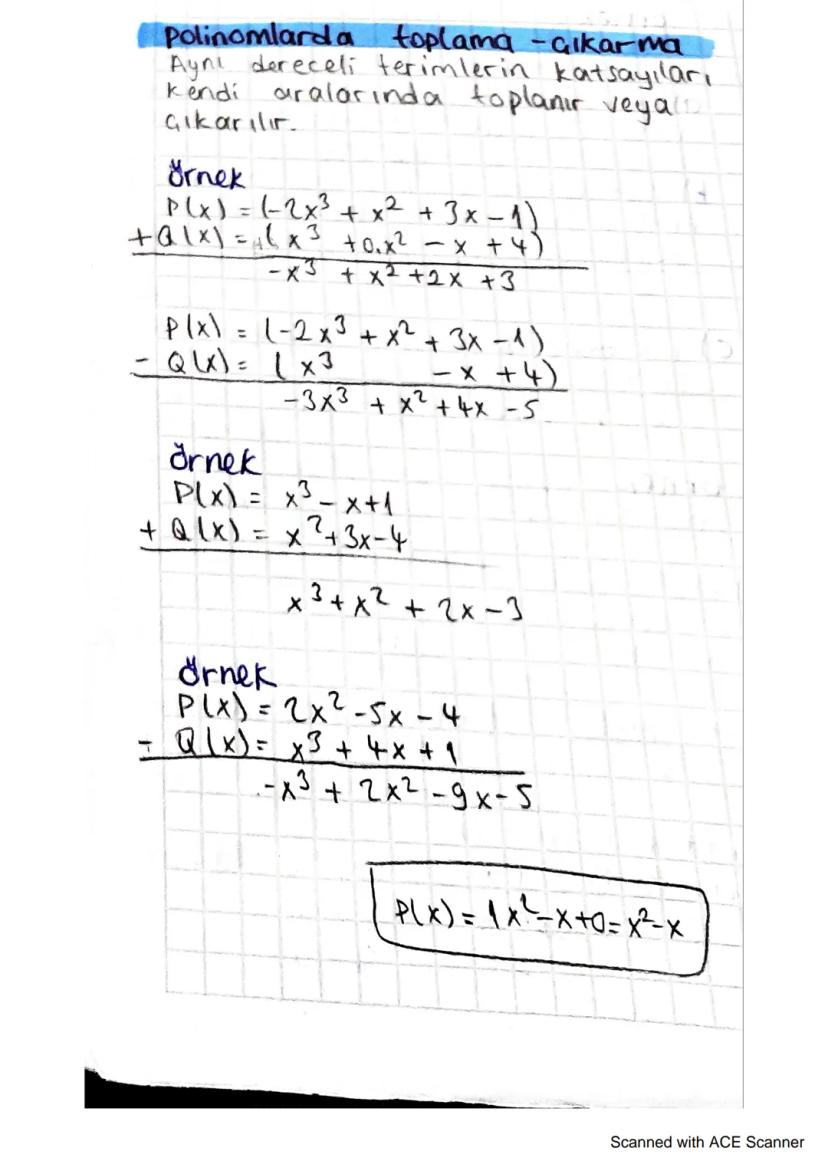 Polinomlarda toplama - çıkarma
Aynı dereceli terimlerin katsayıları
kendi aralarında toplanır veya
çıkarılır.
Örnek
P(x) = (-2x³ + x² + 3x - 1)
+ Q(x) = (x³ + 0.x² - x + 4)
-x³ + x² + 2x + 3
P(x) = (-2x³ + x² + 3x - 1)
- Q(x) = (x³ - x + 4)
-3x³ + x² + 4x - 5
Örnek
P(x) = x³ - x + 1
+ Q(x) = x² + 3x - 4
x³ + x² + 2x - 3
Örnek
P(x) = 2x² - 5x - 4
- Q(x) = x³ + 4x + 1
-x³ + 2x² - 9x - 5
P(x) = 1x² - x + 0 = x² - x
Scanned with ACE Scanner